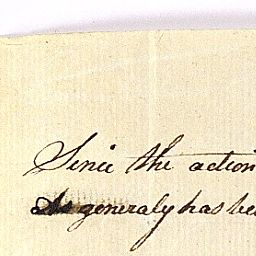 Since the action
As generaly has be